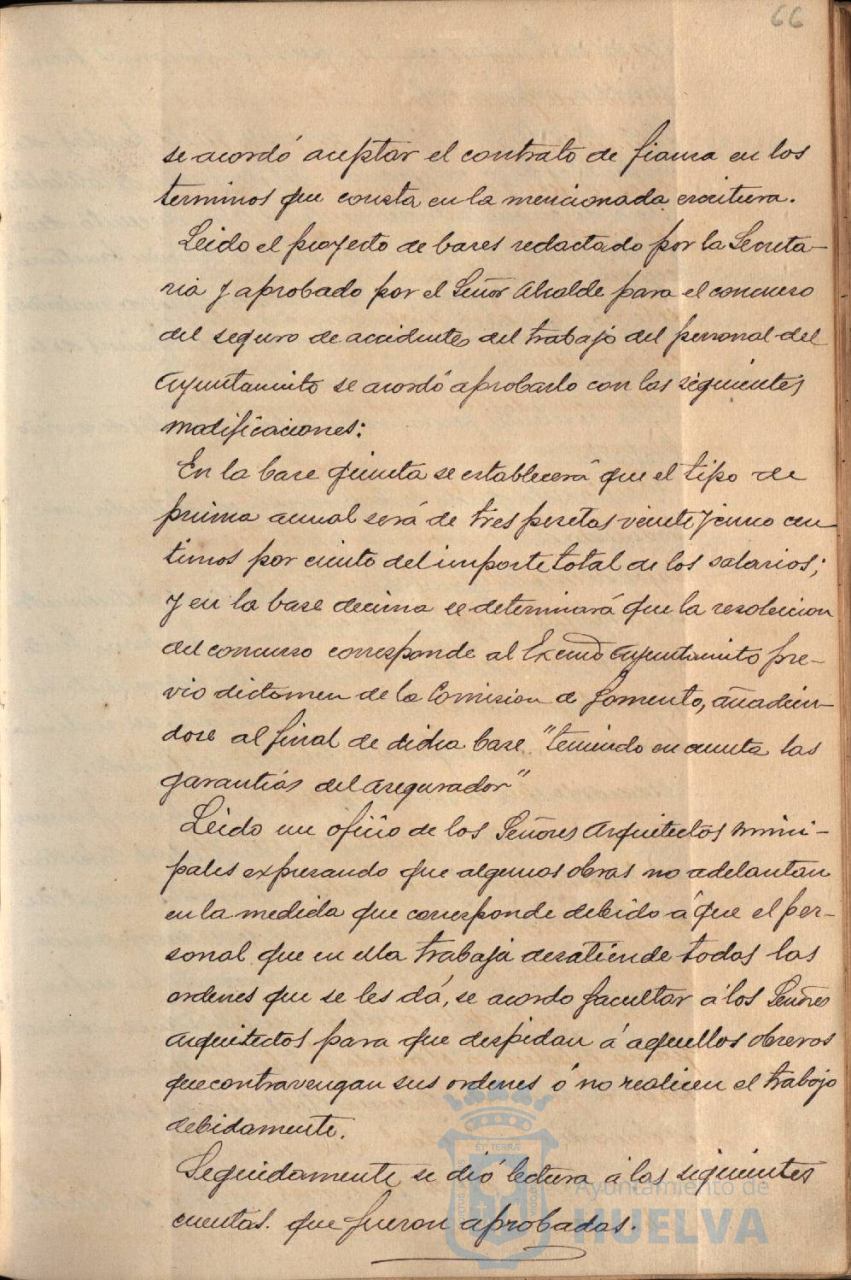 66
se acordó aceptar el contrato de fianza en los
terminos que consta en la mencionada escritura.
Leido el proyecto de bases redactado por la Secreta-
ria y aprobado por el Señor Alcalde para el concurso
del seguro de accidentes del trabajo del personal del
Ayuntamiento se acordó aprobarlo con las siguientes
modificaciones:
En la base quinta se establecerá que el tipo de
prima anual será de tres pesetas veinte y cinco cen
timos por ciento del importe total de los salarios;
y en la base decima se determinará que la resolucion
del concurso corresponde al Excmo Ayuntamiento pre-
vio dictamen de la Comision de Fomento, añadien-
dose al final de dicha base "teniendo en cuenta las
garantías del asegurador"
Leido un oficio de los Señores Arquitectos munici-
pales expresando que algunas obras no adelantan
en la medida que corresponde debido á que el per-
sonal que en ella trabaja desatiende todas las
ordenes que se les dá, se acordo facultar á los Señores
Arquitectos para que despidan á aquellos obreros
que contravengan sus ordenes ó no realicen el trabajo
debidamente.
Seguidamente se dió lectura á las siguientes
cuentas. que fueron aprobadas.
Ayuntamiento de
HUELVA